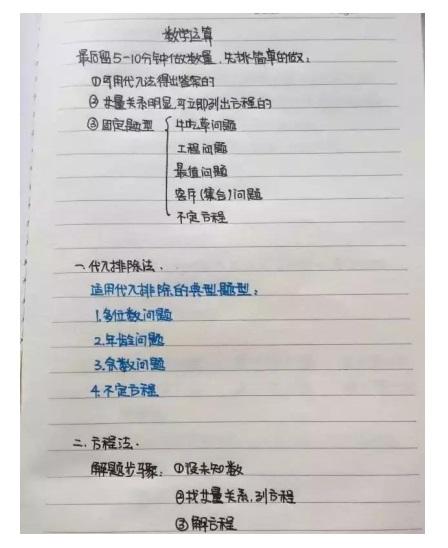 数学运算
最后留5-10分钟做数量,先挑简单的做:
①可用代入法得出答案的
②等量关系明显,可立即列出方程的
③固定题型 { 牛吃草问题
工程问题
最值问题
容斥(集合)问题
不定方程
一、代入排除法.
适用代入排除的典型题型:
1.多位数问题
2.年龄问题
3.余数问题
4.不定方程
二.方程法.
解题步骤: ①设未知数
②找等量关系,列方程
③解方程